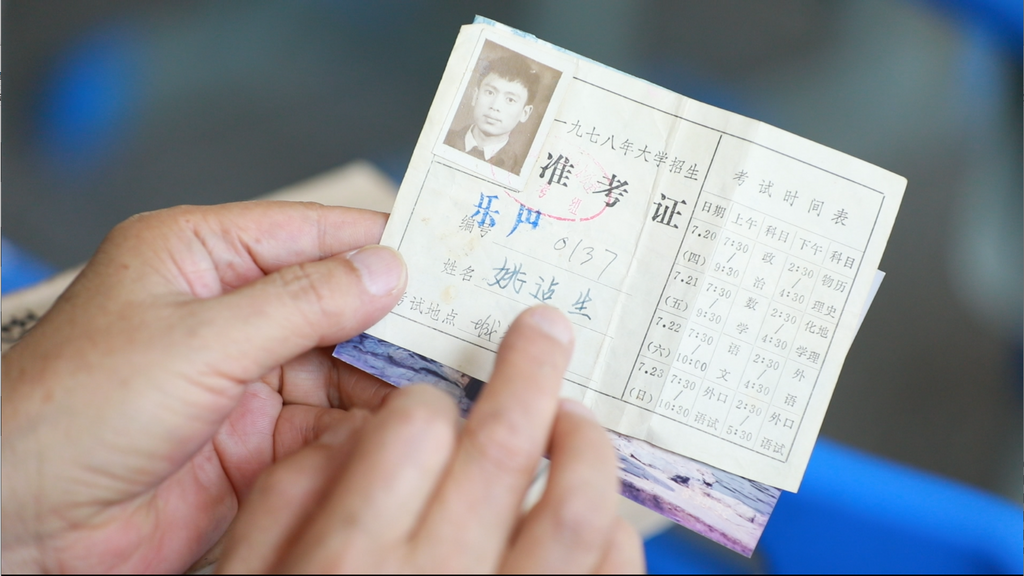 一九七八年大学招生
准考证
乐
编号 0137
姓名 姚 生
考试地点 城
考试时间表
日期 上午 科目 下午 科目
7.20 7:30 政 2:30 物历
(四) 9:30 治 4:30 理史
7.21 7:30 数 2:30 化地
(五) 9:30 学 4:30 学理
7.22 7:30 语 2:30 外
(六) 10:00 文 4:30 语
7.23 7:30 外口 2:30 外口
(日) 10:30 语试 5:30 语试